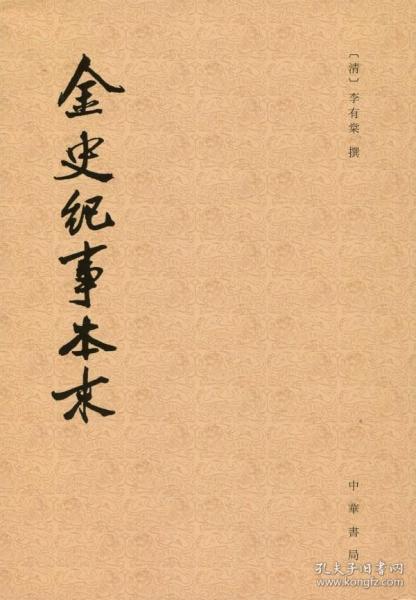 〔清〕李有棠 撰
金史纪事本末
中華書局
孔夫子旧书网
www.kongfz.com